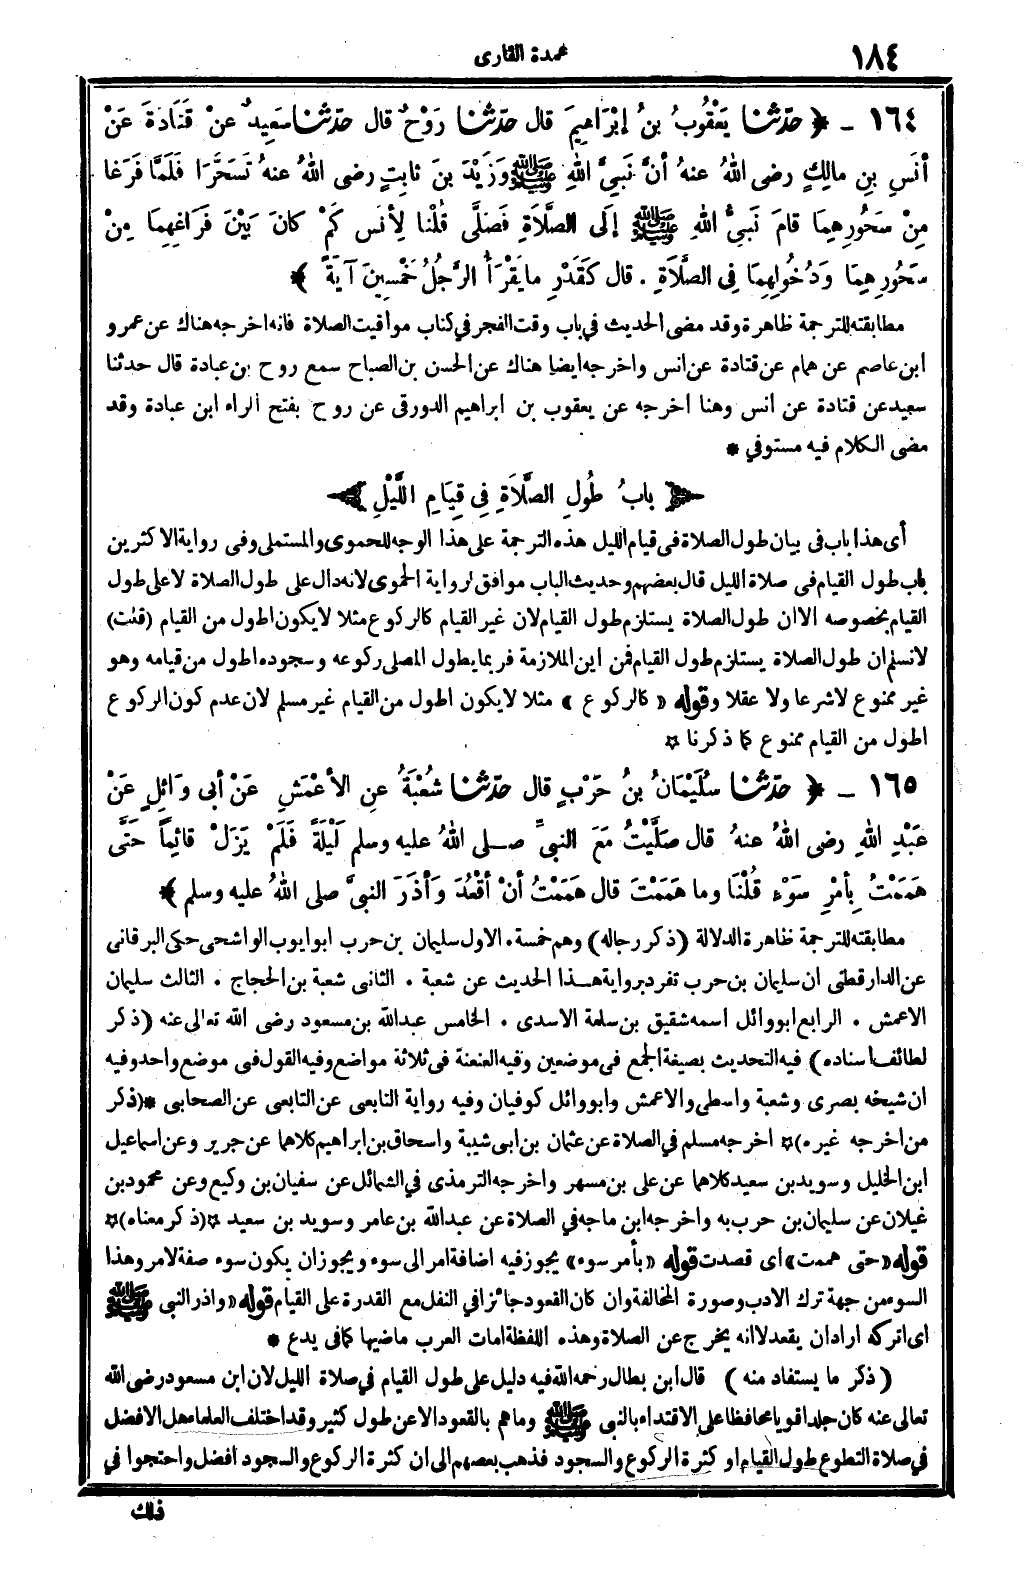 ١٨٤
عمدة القارى
١٦٤ ـ ﴿ حَدَّثَنَا يَعْقُوبُ بنُ إبْرَاهِيمَ قال حَدَّثَنَا رَوْحٌ قال حَدَّثَنَا سَعِيدٌ عنْ قَتَادَةَ عَنْ
أنَسِ بنِ مالِكٍ رضى اللهُ عنهُ أنَّ نَبِيَّ اللهِ ﷺ وَزَيْدَ بنَ ثابِتٍ رضى اللهُ عنهُ تَسَحَّرَا فَلَمَّا فَرَغَا
مِنْ سَحُورِهِمَا قامَ نَبِيُّ اللهِ ﷺ إلَى الصَّلَاةِ فَصَلَّى قُلْنا لِأنَسٍ كَمْ كانَ بَيْنَ فَرَاغِهِمَا مِنْ
سَحُورِهِمَا وَدُخُولِهِمَا فِى الصَّلَاةِ . قال كَقَدْرِ ما يَقْرَأُ الرَّجُلُ خَمْسِينَ آيَةً ﴾
مطابقته للترجمة ظاهرة وقد مضى الحديث في باب وقت الفجر في كتاب مواقيت الصلاة فانه اخرجه هناك عن عمرو
ابن عاصم عن همام عن قتادة عن انس واخرجه ايضا هناك عن الحسن بن الصباح سمع روح بن عبادة قال حدثنا
سعيد عن قتادة عن أنس وهنا اخرجه عن يعقوب بن ابراهيم الدورقى عن روح بفتح الراء ابن عبادة وقد
مضى الكلام فيه مستوفي *
﴿ بابُ طُولِ الصَّلَاةِ فِى قِيَامِ اللَّيْلِ ﴾
أى هذا باب فى بيان طول الصلاة فى قيام الليل هذه الترجمة على هذا الوجه للحموى والمستملى وفى رواية الاكثرين
باب طول القيام فى صلاة الليل قال بعضهم وحديث الباب موافق لرواية الحموى لانه دال على طول الصلاة لا على طول
القيام بخصوصه الا ان طول الصلاة يستلزم طول القيام لان غير القيام كالركوع مثلا لا يكون اطول من القيام (قلت)
لا نسلم ان طول الصلاة يستلزم طول القيام فمن اين الملازمة فربما يطول المصلى ركوعه وسجوده اطول من قيامه وهو
غير ممنوع لا شرعا ولا عقلا وقوله « كالركوع » مثلا لا يكون اطول من القيام غير مسلم لان عدم كون الركوع
اطول من القيام ممنوع كما ذكرنا ☆
١٦٥ ـ ﴿ حَدَّثَنَا سُلَيْمَانُ بنُ حَرْبٍ قال حَدَّثَنَا شُعْبَةُ عنِ الأعْمَشِ عَنْ أبى وَائِلٍ عَنْ
عَبْدِ اللهِ رضى اللهُ عنهُ قال صَلَّيْتُ مَعَ النبىِّ صلى اللهُ عليه وسلم لَيْلَةً فَلَمْ يَزَلْ قائِماً حَتَّى
هَمَمْتُ بِأمْرِ سَوْءٍ قُلْنَا وما هَمَمْتَ قال هَمَمْتُ أنْ أقْعُدَ وَأذَرَ النبىَّ صلى اللهُ عليه وسلم ﴾
مطابقته للترجمة ظاهرة الدلالة (ذكر رجاله) وهم خمسة . الاول سليمان بن حرب ابو ايوب الواشحى حكى البرقانى
عن الدارقطنى ان سليمان بن حرب تفرد برواية هذا الحديث عن شعبة . الثانى شعبة بن الحجاج . الثالث سليمان
الاعمش . الرابع ابو وائل اسمه شقيق بن سلمة الاسدى . الخامس عبدالله بن مسعود رضى الله تعالى عنه (ذكر
لطائف اسناده) فيه التحديث بصيغة الجمع فى موضعين وفيه العنعنة فى ثلاثة مواضع وفيه القول فى موضع واحد وفيه
ان شيخه بصرى وشعبة واسطى والاعمش وابو وائل كوفيان وفيه رواية التابعى عن التابعى عن الصحابى *(ذكر
من اخرجه غيره)☆ اخرجه مسلم في الصلاة عن عثمان بن ابى شيبة واسحاق بن ابراهيم كلاهما عن جرير وعن اسماعيل
ابن الخليل وسويد بن سعيد كلاهما عن على بن مسهر واخرجه الترمذى في الشمائل عن سفيان بن وكيع وعن محمود بن
غيلان عن سليمان بن حرب به واخرجه ابن ماجه في الصلاة عن عبدالله بن عامر وسويد بن سعيد ☆(ذكر معناه)☆
قوله «حتى هممت» اى قصدت قوله «بأمر سوء» يجوز فيه اضافة امر الى سوء ويجوز ان يكون سوء صفة لامر وهذا
السوء من جهة ترك الادب وصورة المخالفة وان كان القعود جائزا في النفل مع القدرة على القيام قوله «واذر النبى ﷺ
اى اتركه اراد ان يقعد لا انه يخرج عن الصلاة وهذه اللفظة امات العرب ماضيها كما فى يدع *
(ذكر ما يستفاد منه) قال ابن بطال رحمه الله فيه دليل على طول القيام في صلاة الليل لان ابن مسعود رضى الله
تعالى عنه كان جلدا قويا محافظا على الاقتداء بالنبى ﷺ وما هم بالقعود الا عن طول كثير وقد اختلف العلماء هل الافضل
في صلاة التطوع طول القيام او كثرة الركوع والسجود فذهب بعضهم الى ان كثرة الركوع والسجود افضل واحتجوا في
ذلك